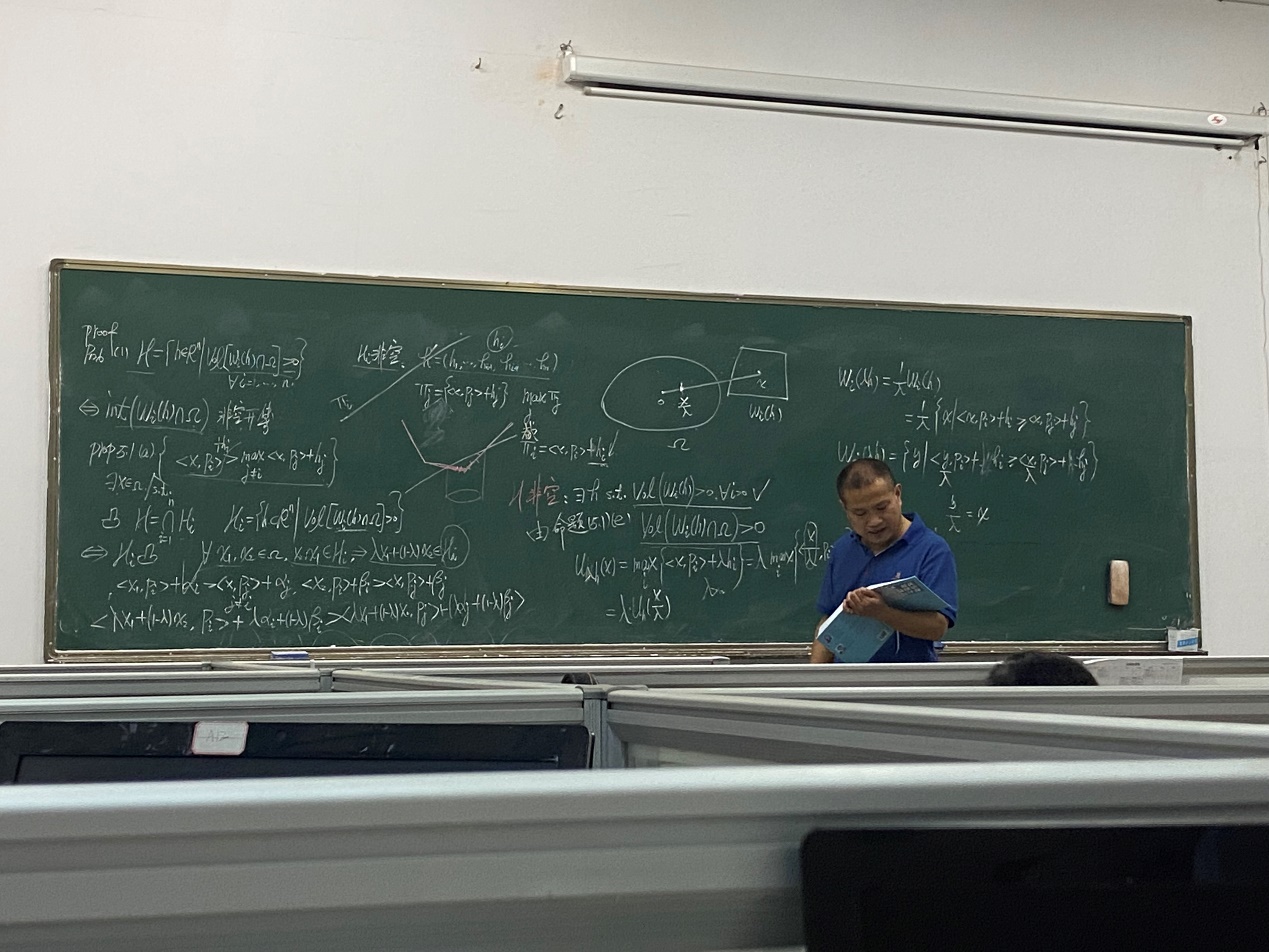 proof
Prob (1) H = {h∈Rⁿ | Vol[Wᵢ(h)∩Ω] ≥0}
∀i=1,…,n
⇔ int(Wᵢ(h)∩Ω) 非空开集
prop 5.1 (a) { <x,pᵢ>+hᵢ > max_{j≠i} <x,pⱼ>+hⱼ }
∃x∈Ω, s.t.
凸 H = ⋂ᵢ₌₁ⁿ Hᵢ Hᵢ={h∈Rⁿ | Vol[Wᵢ(h)∩Ω]>0}
⇔ Hᵢ凸 ∀ x₁, x₂∈Ω, x₁,x₂∈Hᵢ, ⇒ λx₁+(1-λ)x₂∈Hᵢ
<x,pᵢ>+αᵢ > <x,pⱼ>+αⱼ, <x,pᵢ>+βᵢ > <x,pⱼ>+βⱼ
j≠i
<λx₁+(1-λ)x₂, pᵢ>+λαᵢ+(1-λ)βᵢ > <λx₁+(1-λ)x₂, pⱼ>+(λαⱼ+(1-λ)βⱼ>
hᵢ
Hᵢ非空.
πⱼ={<x,pⱼ>+hⱼ} max πⱼ
πᵢ=<x,pᵢ>+hᵢ
πᵢⱼ
0
x/λ
x
Ω
Wᵢ(h)
H非空: ∃h s.t. Vol(Wᵢ(h))>0, ∀i>0 √
由命题(5.1)(e) Vol(Wᵢ(h)∩Ω)>0
U_{λh}(x) = maxᵢ{<x,pᵢ>+λhᵢ} = λ maxᵢ{<x/λ, pᵢ
= λU_h(x/λ)
Wᵢ(λh) = 1/λ Wᵢ(h)
= 1/λ {x | <x,pᵢ>+hᵢ ≥ <x,pⱼ>+hⱼ}
= {y | <y/λ,pᵢ>+hᵢ ≥ <y/λ,pⱼ>+hⱼ}
y/λ = x